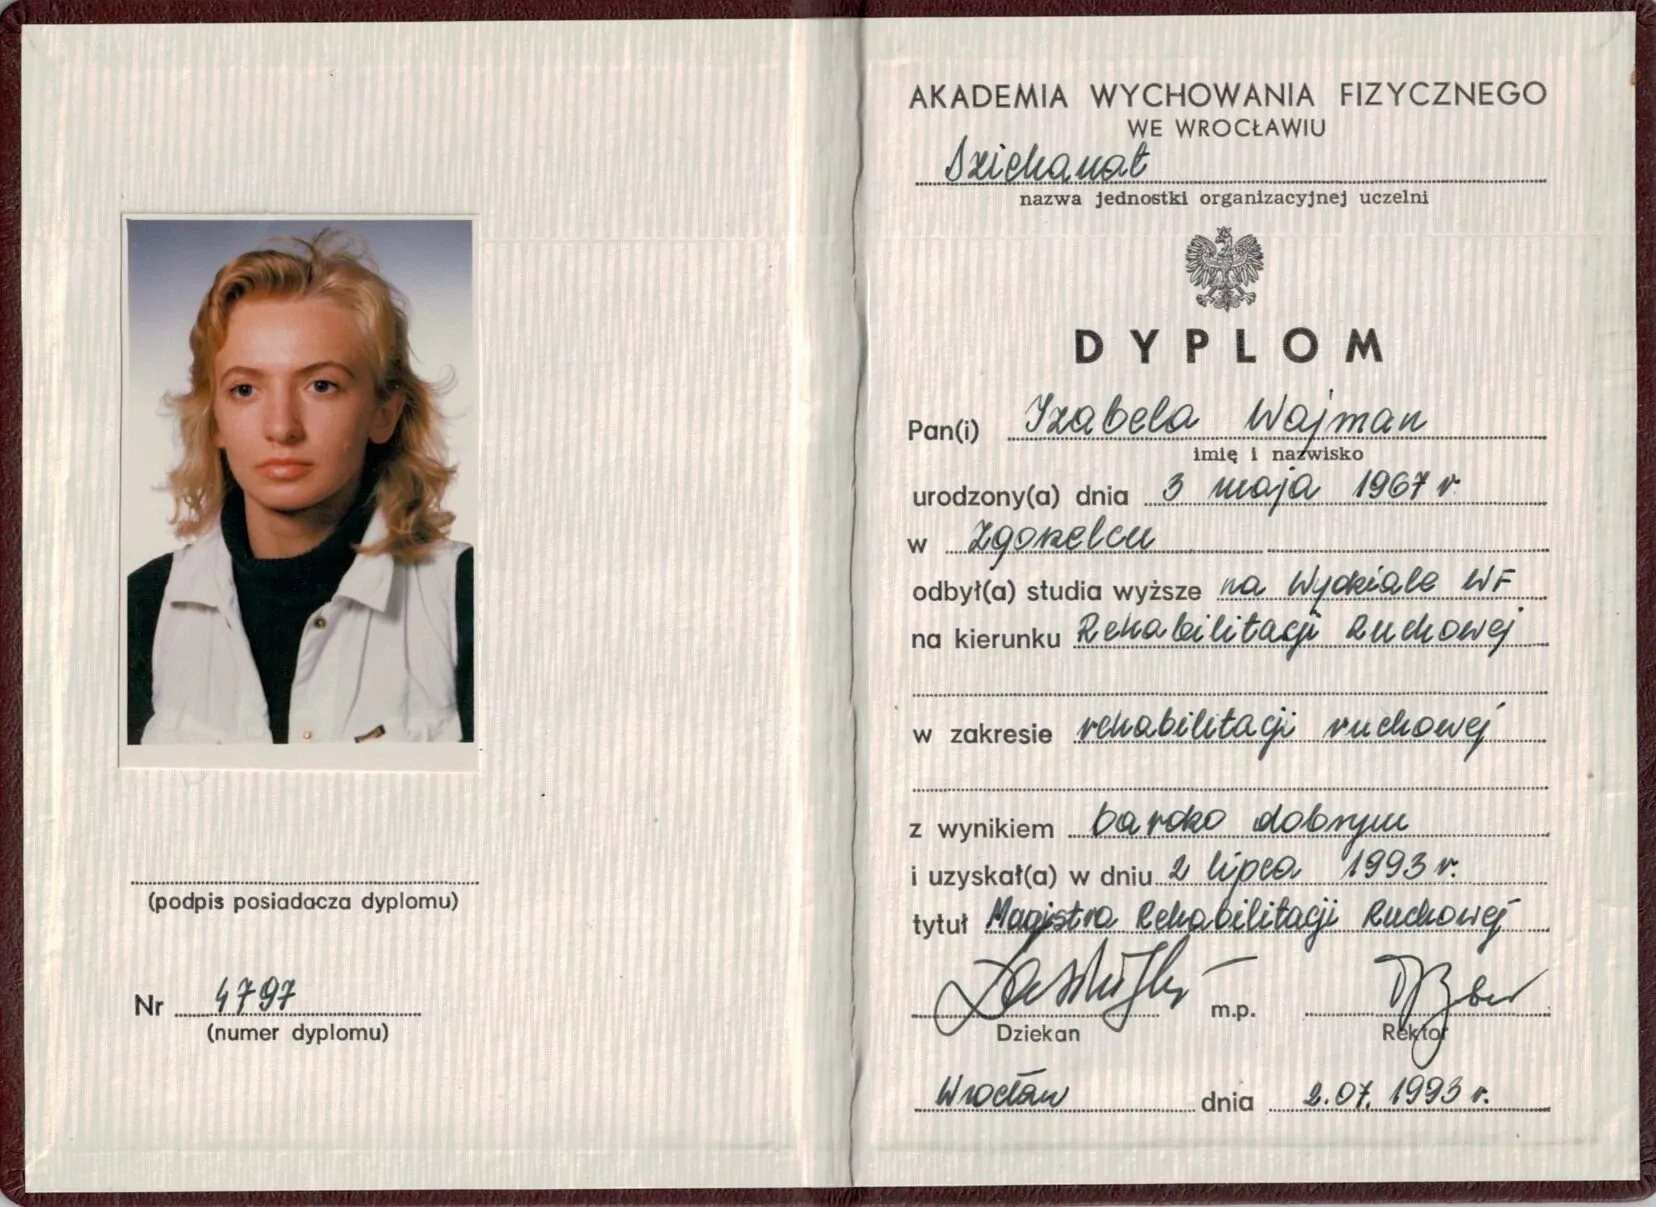 (podpis posiadacza dyplomu)
Nr 4797
(numer dyplomu)
AKADEMIA WYCHOWANIA FIZYCZNEGO
WE WROCŁAWIU
Dziekanat
nazwa jednostki organizacyjnej uczelni
DYPLOM
Pan(i) Izabela Wajman
imię i nazwisko
urodzony(a) dnia 3 maja 1967 r.
w Zgorzelcu
odbył(a) studia wyższe na Wydziale WF
na kierunku Rehabilitacji Ruchowej
w zakresie rehabilitacji ruchowej
z wynikiem bardzo dobrym
i uzyskał(a) w dniu 2 lipca 1993 r.
tytuł Magistra Rehabilitacji Ruchowej
m.p.
Dziekan Rektor
Wrocław dnia 2.07.1993 r.